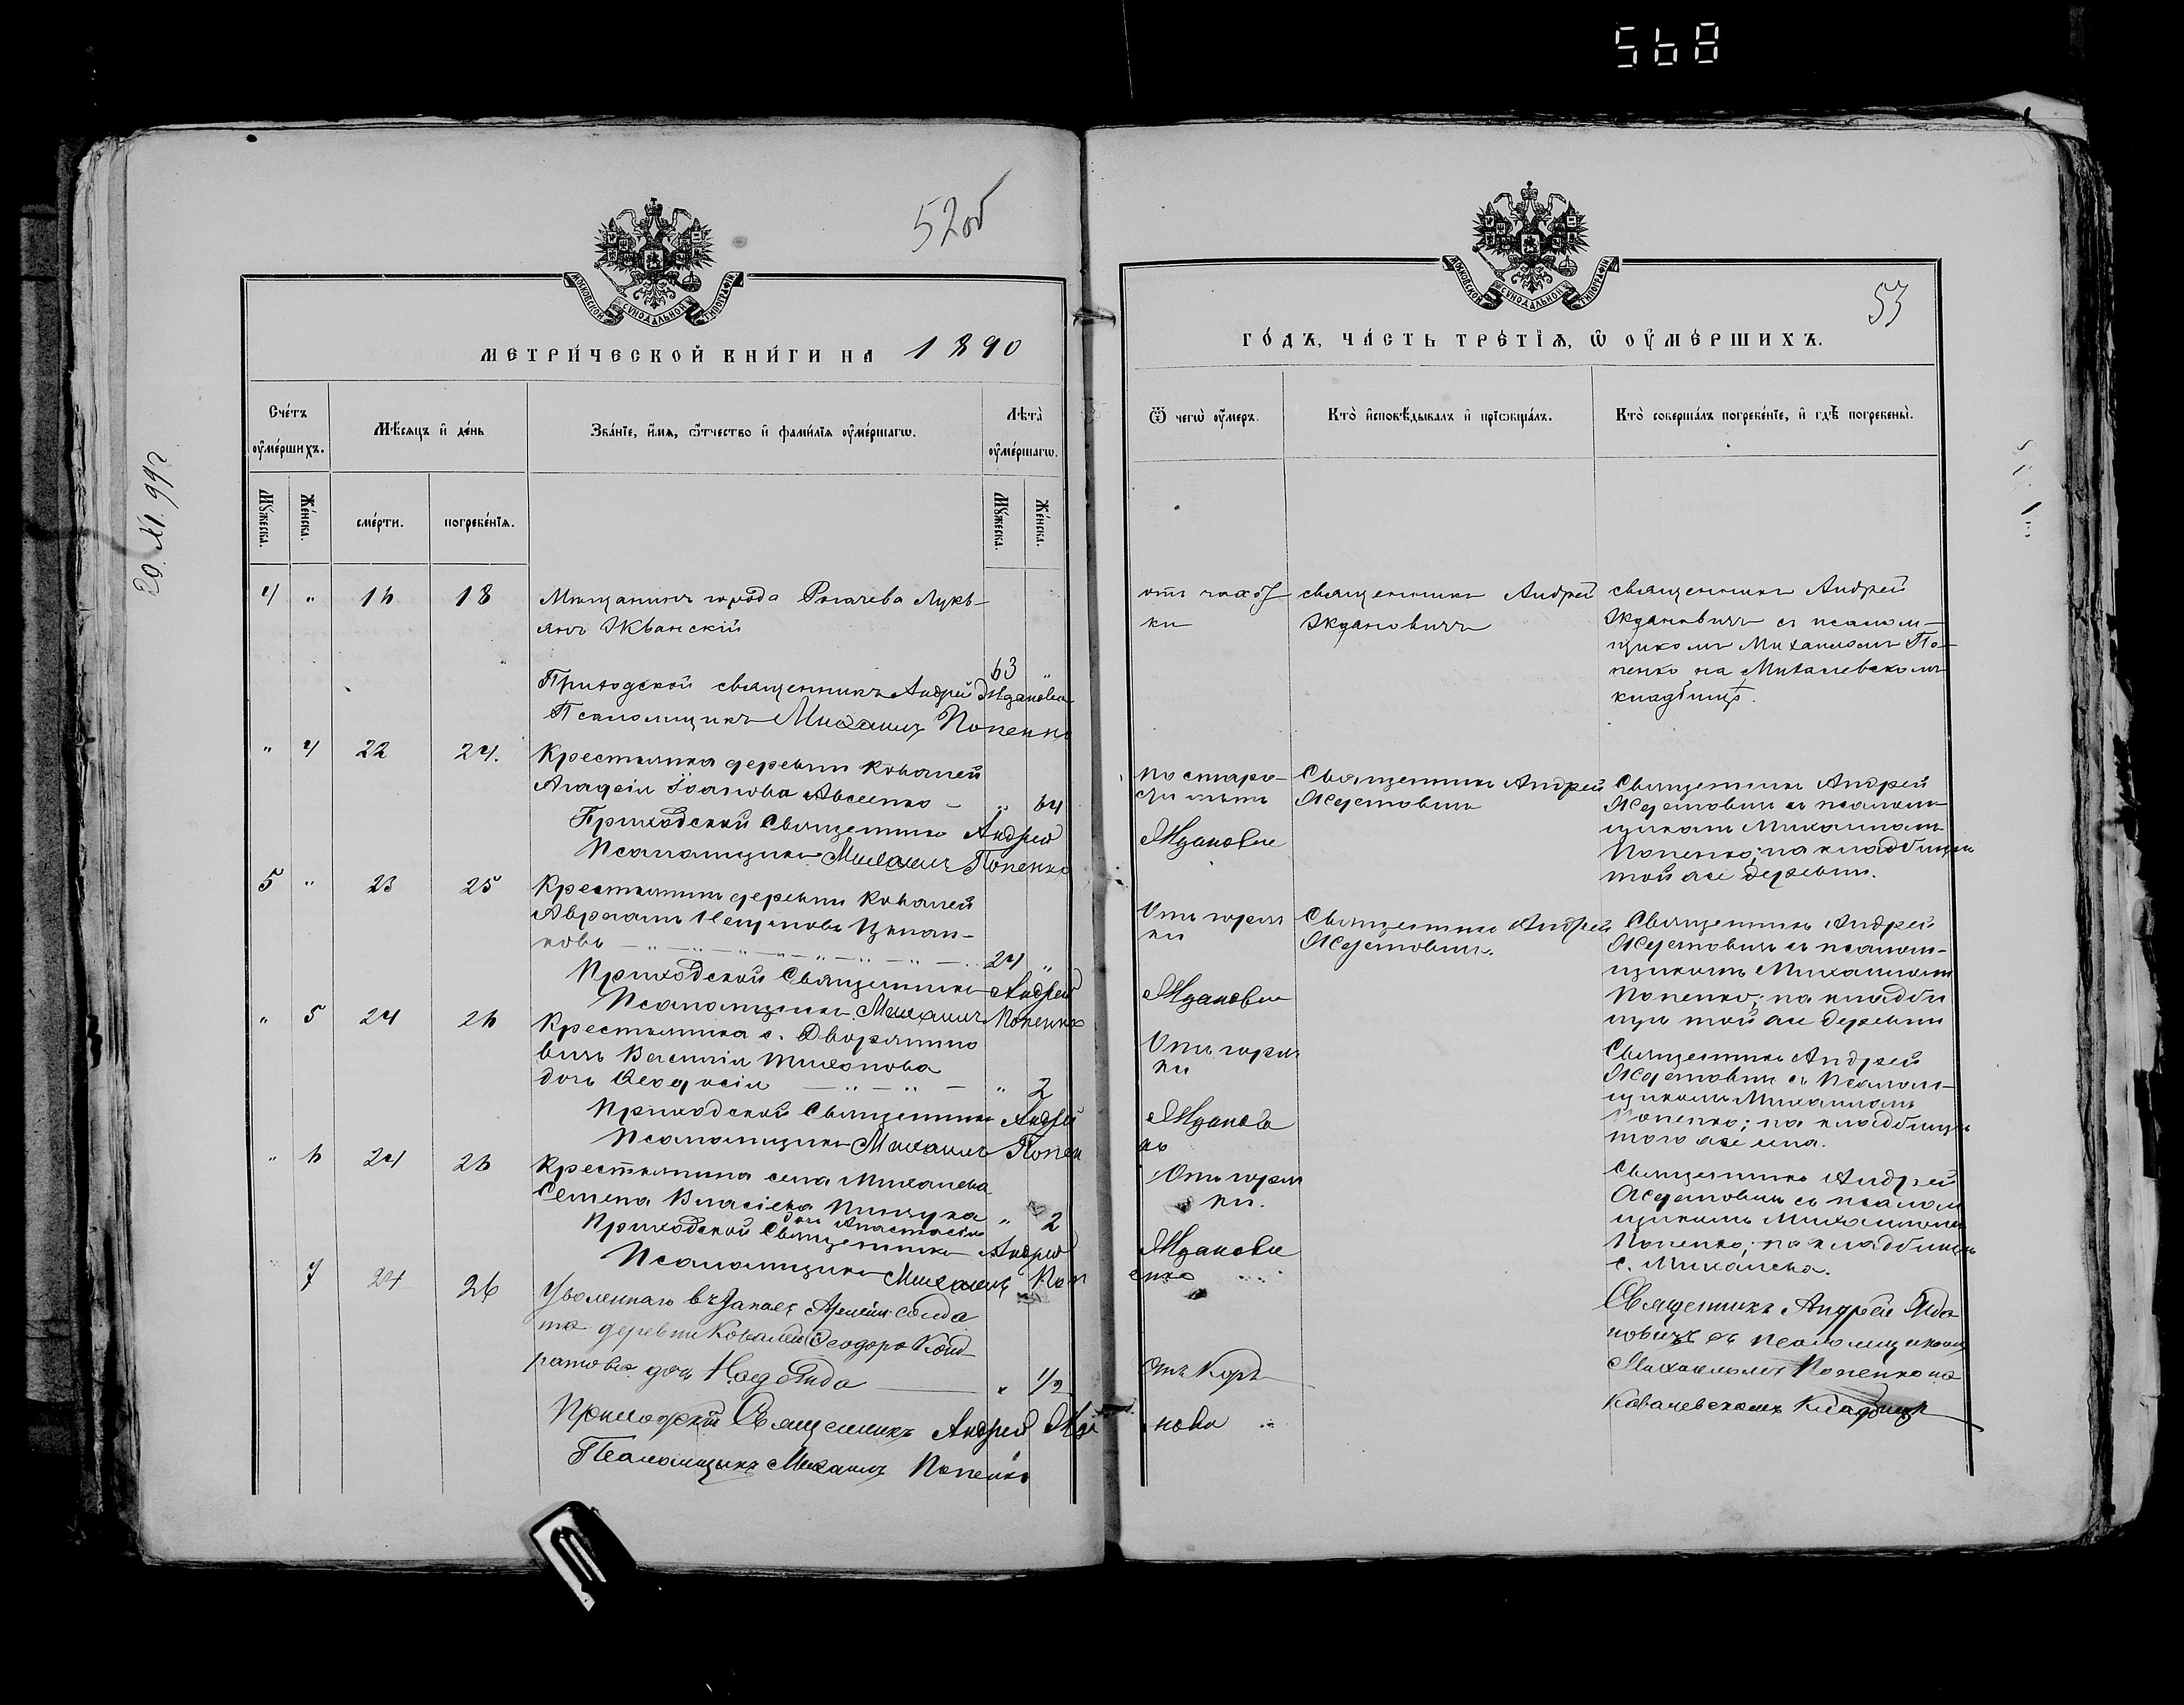 568
52об
МОСКОВСКОЙ СѴНОДАЛЬНОЙ ТИПОГРАФІИ
МЕТРИ́ЧЕСКОЙ КНИ́ГИ НА 1890
Сче́тъ ᲂу҆ме́ршихъ.
Мѣ́сяцъ и҆ де́нь
Зва́нїе, и҆́мѧ, ѻ҆́тчество и҆ фамі́лїѧ ᲂу҆ме́ршагѡ.
Лѣ́та ᲂу҆ме́ршагѡ.
Му́жеска.
Же́нска.
сме́рти.
погребе́нїѧ.
Му́жеска.
Же́нска.
4 " 16 18 Мѣщанинъ города Рогачева Лукь-
янъ Жванскій
63 "
Приходской священникъ Андрей Жданович
Псаломщикъ Михаилъ Попенко
" 4 22 24. Крестьянка деревни Ковалей
Агафія Іванова Авсеенко — " 64
Приходской Священникъ Андрей
Псаломщикъ Михаилъ Попенко
5 " 23 25 Крестьянинъ деревни Ковалей
Авраамъ
новъ 24 "
Приходской Священникъ Андрей
Псаломщикъ Михаилъ Попенко
" 5 24 26 Крестьянина с. Дворянино
вичъ Василія Тихонова
дочь Ѳеодосія " 2
Приходской Священникъ Андрей
Псаломщикъ Михаилъ Попен
" 6 24 26 Крестьянина села Михалева
Семена Власіева
дочь Анастасія " 2
Приходской Священникъ Андрей
Псаломщикъ Михаилъ Поп
7 24 26 Уволеннаго въ запасъ Арміи солда
та деревни Ковалей Ѳеодора Конд
ратова дочь Надежда " 1/2
Приходскій Священникъ Андрей Жда
Псаломщикъ Михаилъ Попенко
20. XI. 99г
53
МОСКОВСКОЙ СѴНОДАЛЬНОЙ ТИПОГРАФІИ
ГО́ДЪ, ЧА́СТЬ ТРЕ́ТЇѦ, Ѡ҆ ОУ҆МЕ́РШИХЪ.
Ѿ чегѡ̀ ᲂу҆́меръ.
Кто̀ и҆сповѣ́дывалъ и҆ прїѡбща́лъ.
Кто̀ соверша́лъ погребе́нїе, и҆ гдѣ̀ погребены̀.
отъ чахот
ки
священникъ Андрей
Ждановичъ
священникъ Андрей
Ждановичъ съ псалом-
щикомъ Михаиломъ По-
пенко на Михалевскомъ
кладбищѣ.
по старо-
сти лѣтъ
Священникъ Андрей
Ждановичъ
Священникъ Андрей
Ждановичъ съ псалом-
щикомъ Михаиломъ
Попенко; на кладбищѣ
той же деревни.
Жданович
Отъ горяч
ки
Священникъ Андрей
Ждановичъ.
Священникъ Андрей
Ждановичъ съ псалом-
щикомъ Михаиломъ
Попенко; на кладби
щѣ той же деревни
Жданович
Отъ горяч
ки
Священникъ Андрей
Ждановичъ съ Псалом-
щикомъ Михаиломъ
Попенко; на кладбищѣ
того же села.
Жданов
ко
Отъ горяч
ки.
Священникъ Андрей
Ждановичъ съ псалом
щикомъ Михаиломъ
Попенко; на кладбищѣ
с. Михалева.
Жданович
енко
Отъ Корь
Священникъ Андрей Жда
новичъ съ псаломщикомъ
Михаиломъ Попенко на
Ковалевскомъ Кладбищѣ
нови